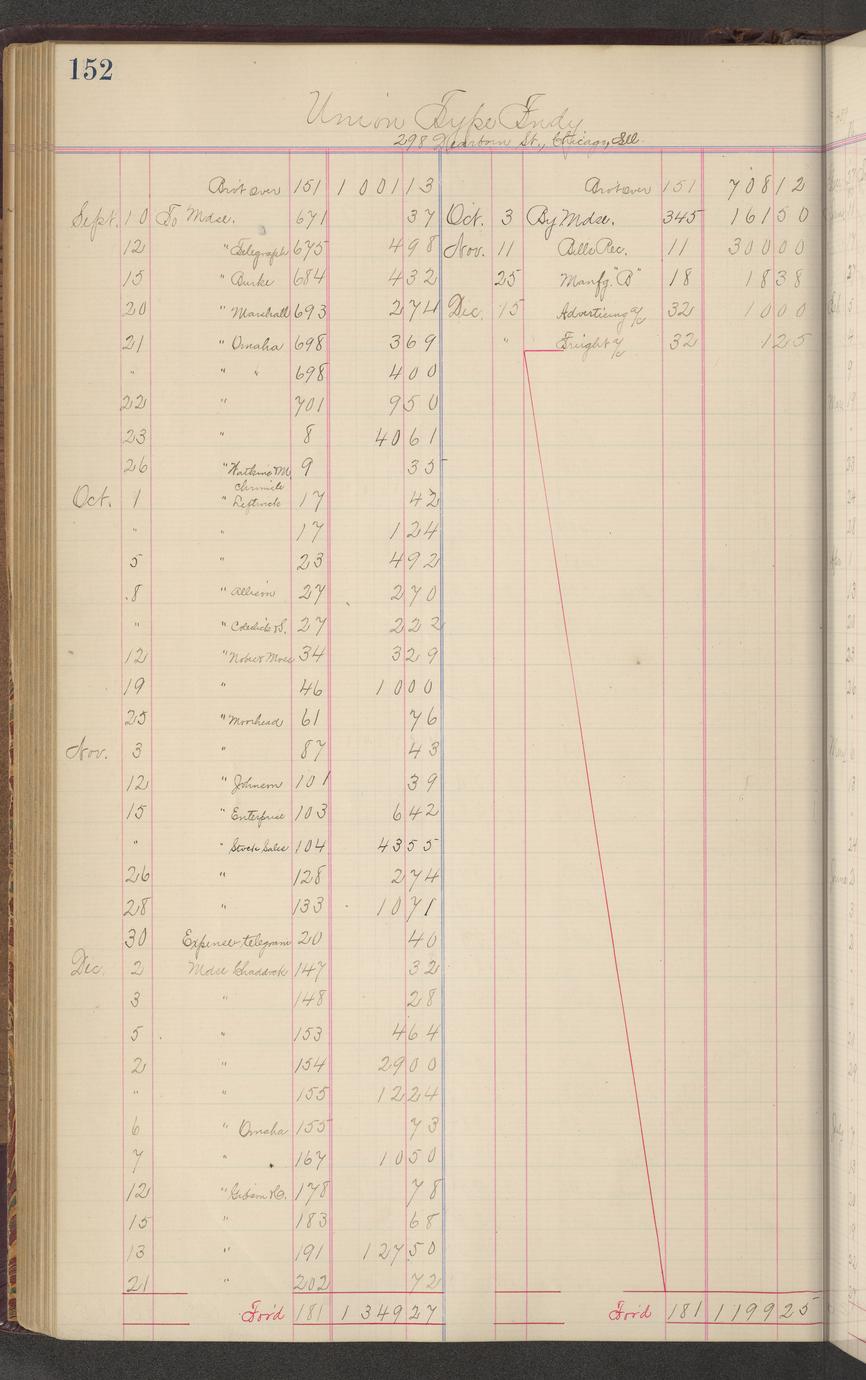 152
Union Type Fndy
298 Dearborn St., Chicago, Ill.
Brot over 151 1 001 13 Brot over 151 708 12
Sept. 10 To Mdse. 671 37 Oct. 3 By Mdse. 345 161 50
12 " Telegraph 675 4 98 Nov. 11 Bills Rec. 11 300 00
15 " Burke 684 4 32 25 Manfg. "B" 18 18 38
20 " Marshall 693 2 74 Dec. 15 Advertising a/c 32 10 00
21 " Omaha 698 3 69 " Freight a/c 32 1 25
" " " 698 4 00
22 " 701 9 50
23 " 8 40 61
26 " Watkins M 9 35
Chronicle
Oct. 1 " Leftwick 17 42
" " 17 1 24
5 " 23 4 92
8 " Allison 27 2 70
" " 27 2 22
12 " 34 3 29
19 " 46 10 00
25 " Moorhead 61 76
Nov. 3 " 87 43
12 " Johnson 101 39
15 " Enterprise 103 6 42
" " Stock Sales 104 43 55
26 " 128 2 74
28 " 133 10 71
30 Expense telegram 20 40
Dec. 2 Mdse Chadock 147 32
3 " 148 28
5 " 153 4 64
2 " 154 29 00
" " 155 12 24
6 " Omaha 155 73
7 " 167 10 50
12 " Gibson 178 78
15 " 183 68
13 " 191 127 50
21 " 202 72
For'd 181 1 349 27 For'd 181 1 199 25